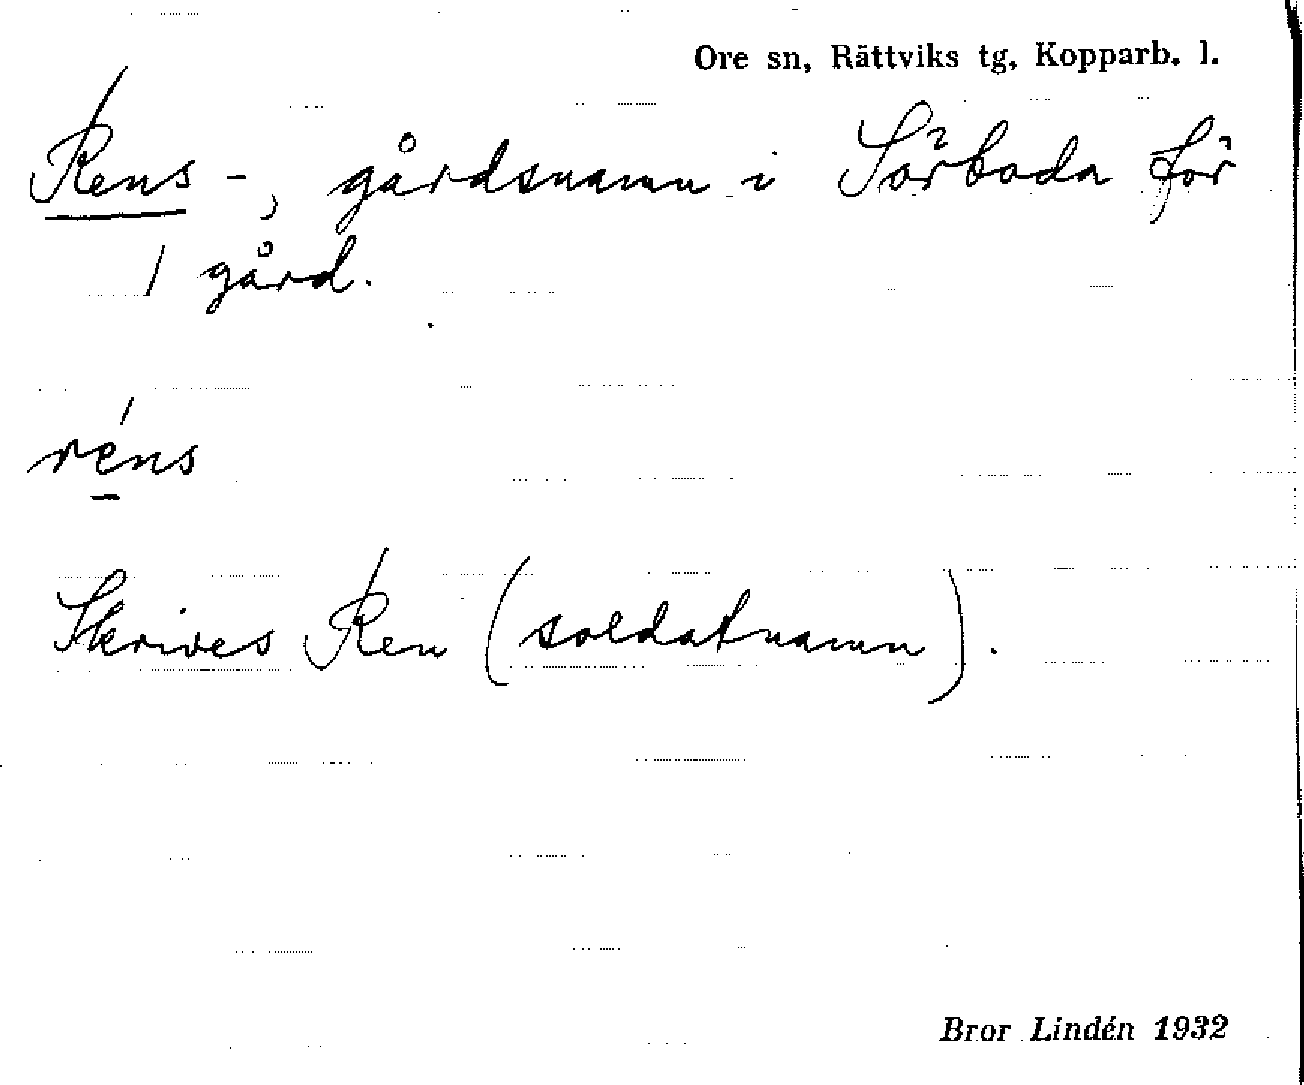 Ore sn, Rättviks tg, Kopparb. l.
Rens -, gårdsnamn i Sörboda för
1 gård.
réns
Skrives Ren (soldatnamn).
Bror Lindén 1932